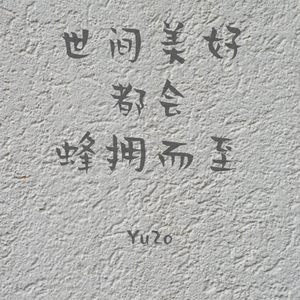 世间美好
都会
蜂拥而至
Yuzo